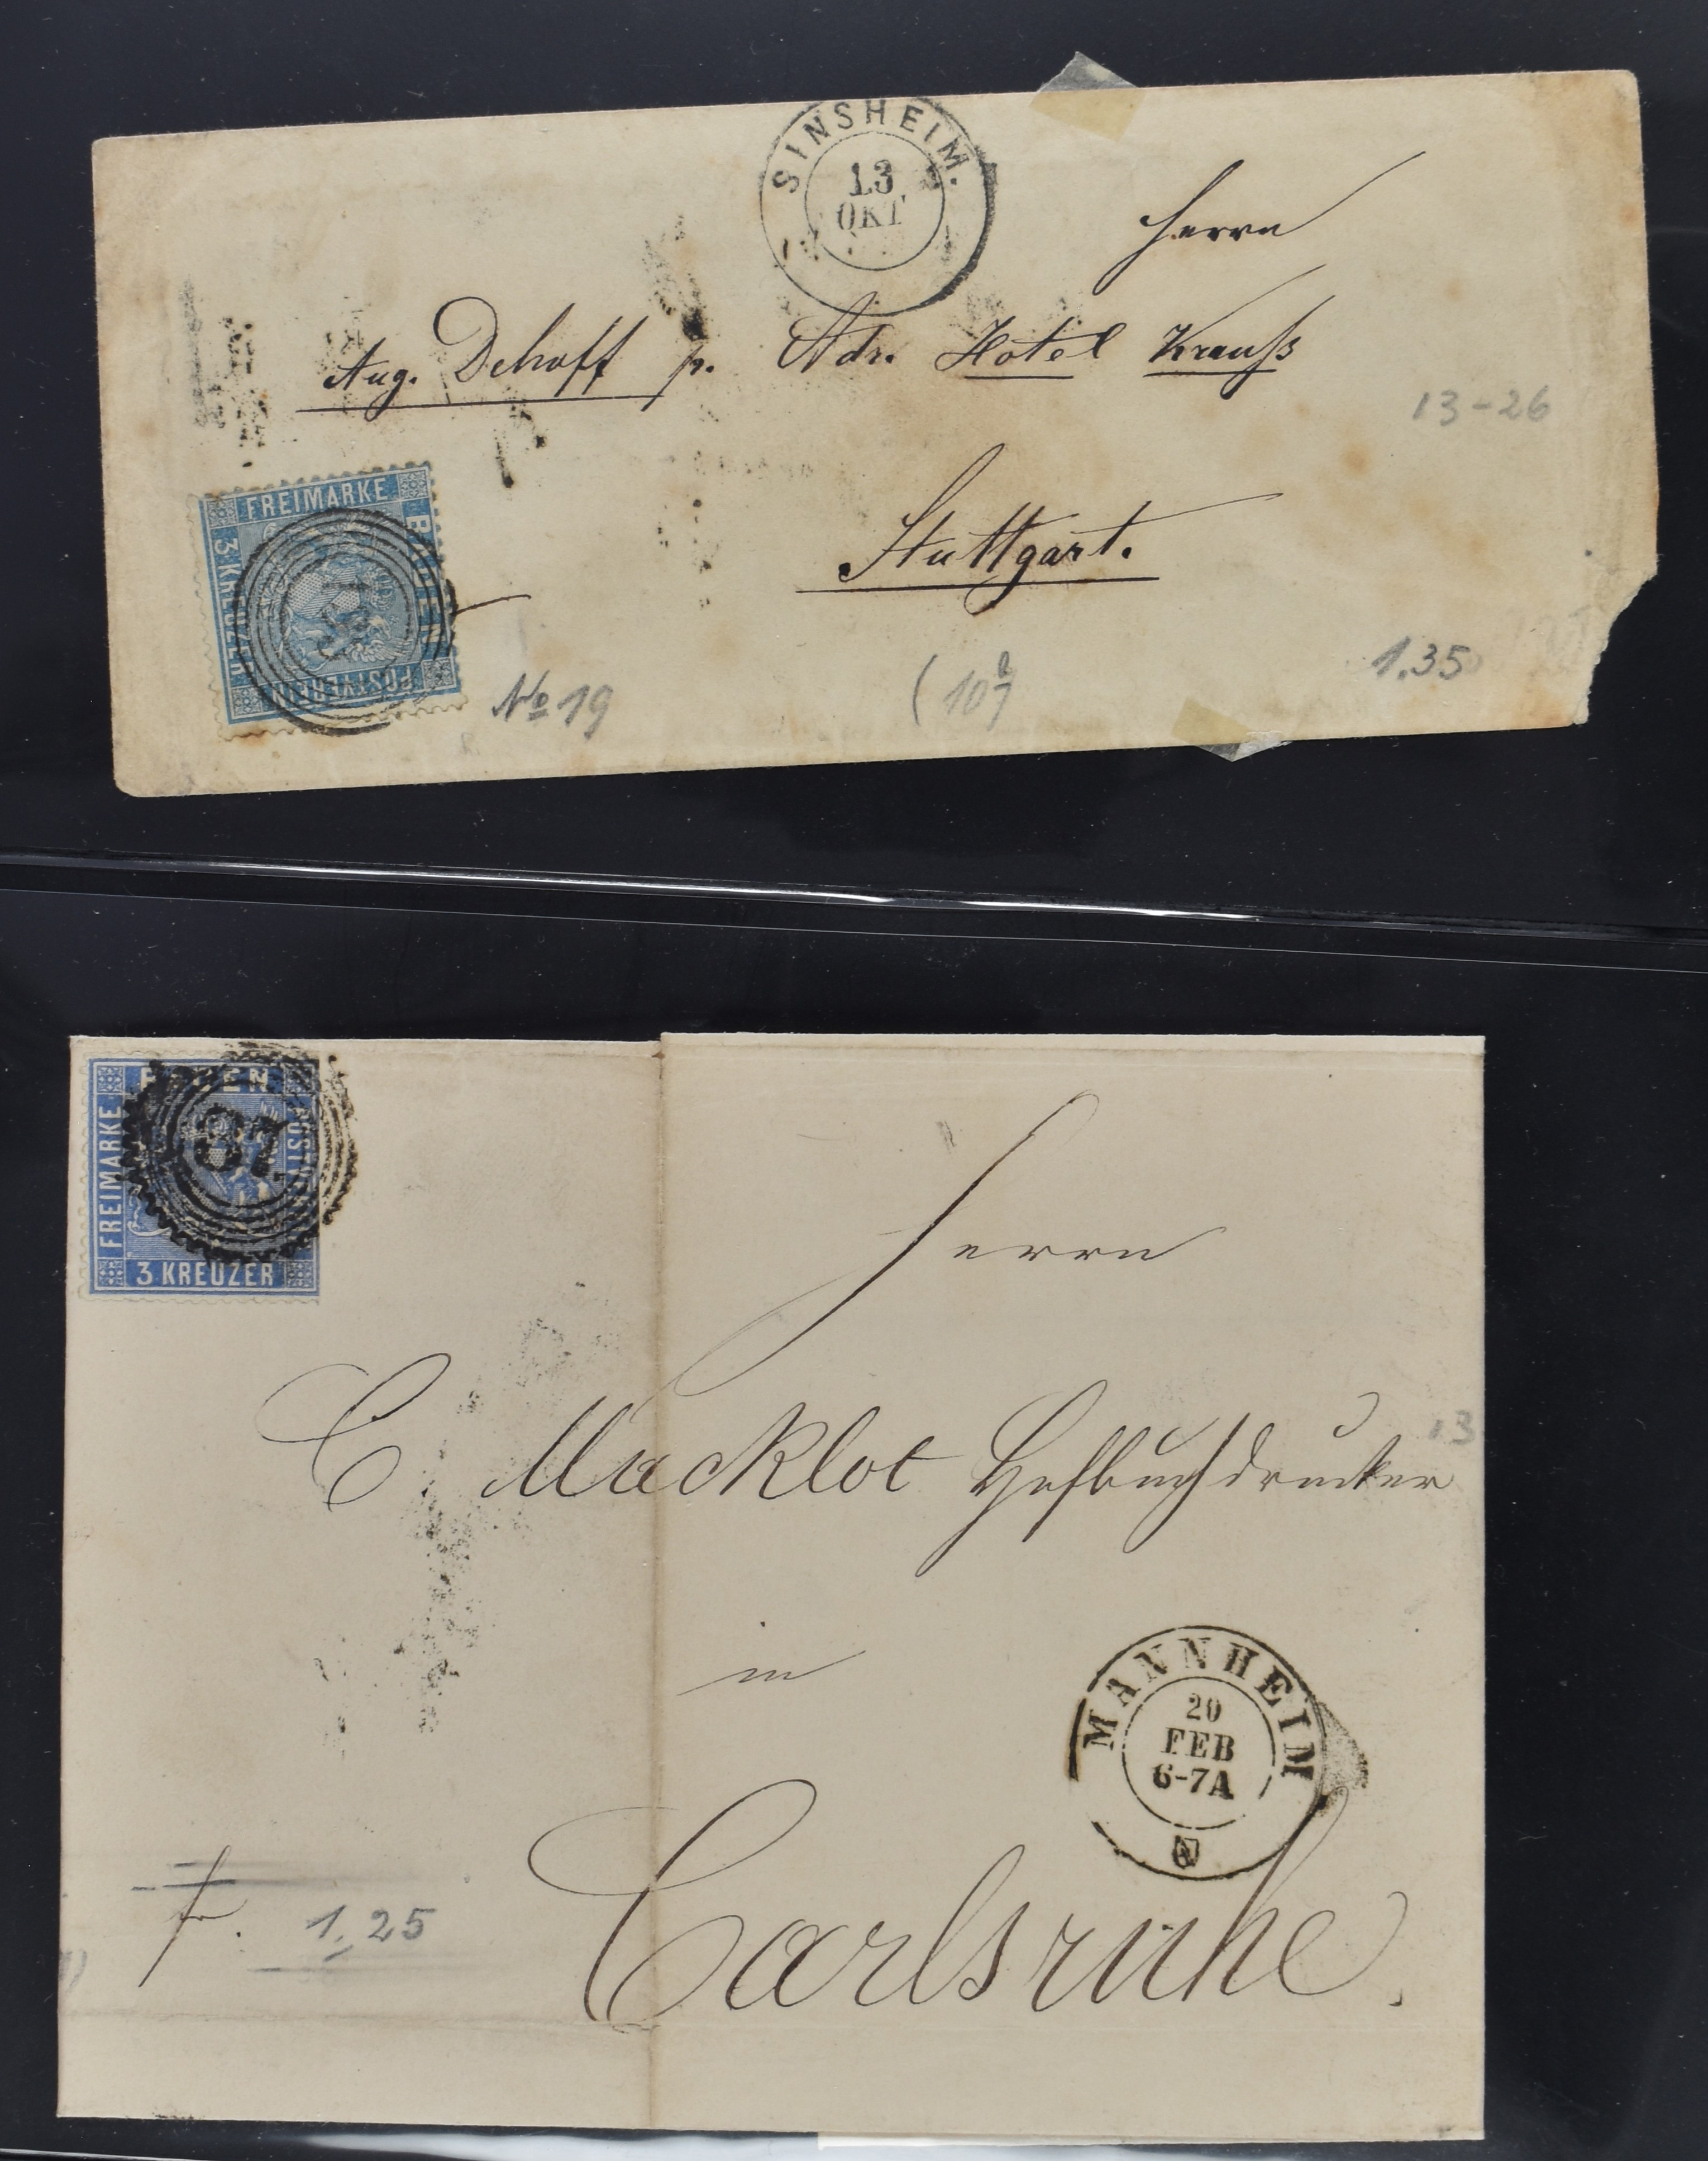 SINSHEIM.
13
OKT
Herrn
Aug. Dehoff p. Adr. Hotel Krauß
13-26
Stuttgart.
FREIMARKE
BADEN
3 KREUZER
POSTVEREIN
No 19
1.35
BADEN
87
FREIMARKE
3 KREUZER
Herrn
C Macklot Hofbuchdrucker
13
in
MANNHEIM
20
FEB
6-7A
Carlsruhe.
fr.
1.25